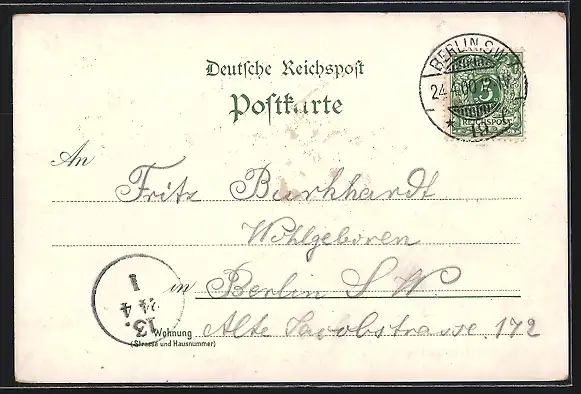 Deutsche Reichspost
Postkarte
BERLIN.S.W.
24.4.00.
* 19
5
REICHSPOST
An
Fritz Burkhardt
Wohlgeboren
in Berlin S W
Wohnung Alte Jacobstrasse 172
(Strasse und Hausnummer)
13.
24 4
1